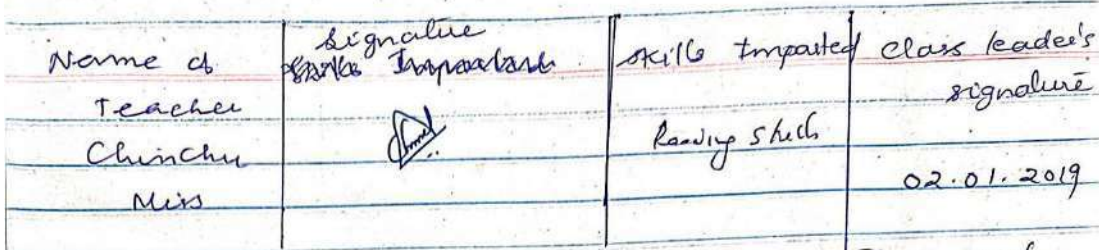 Name of
Teacher
Signature
Skills Imparted
Class leader's
signature
Chinchu
Miss
Running Stitch
02.01.2019